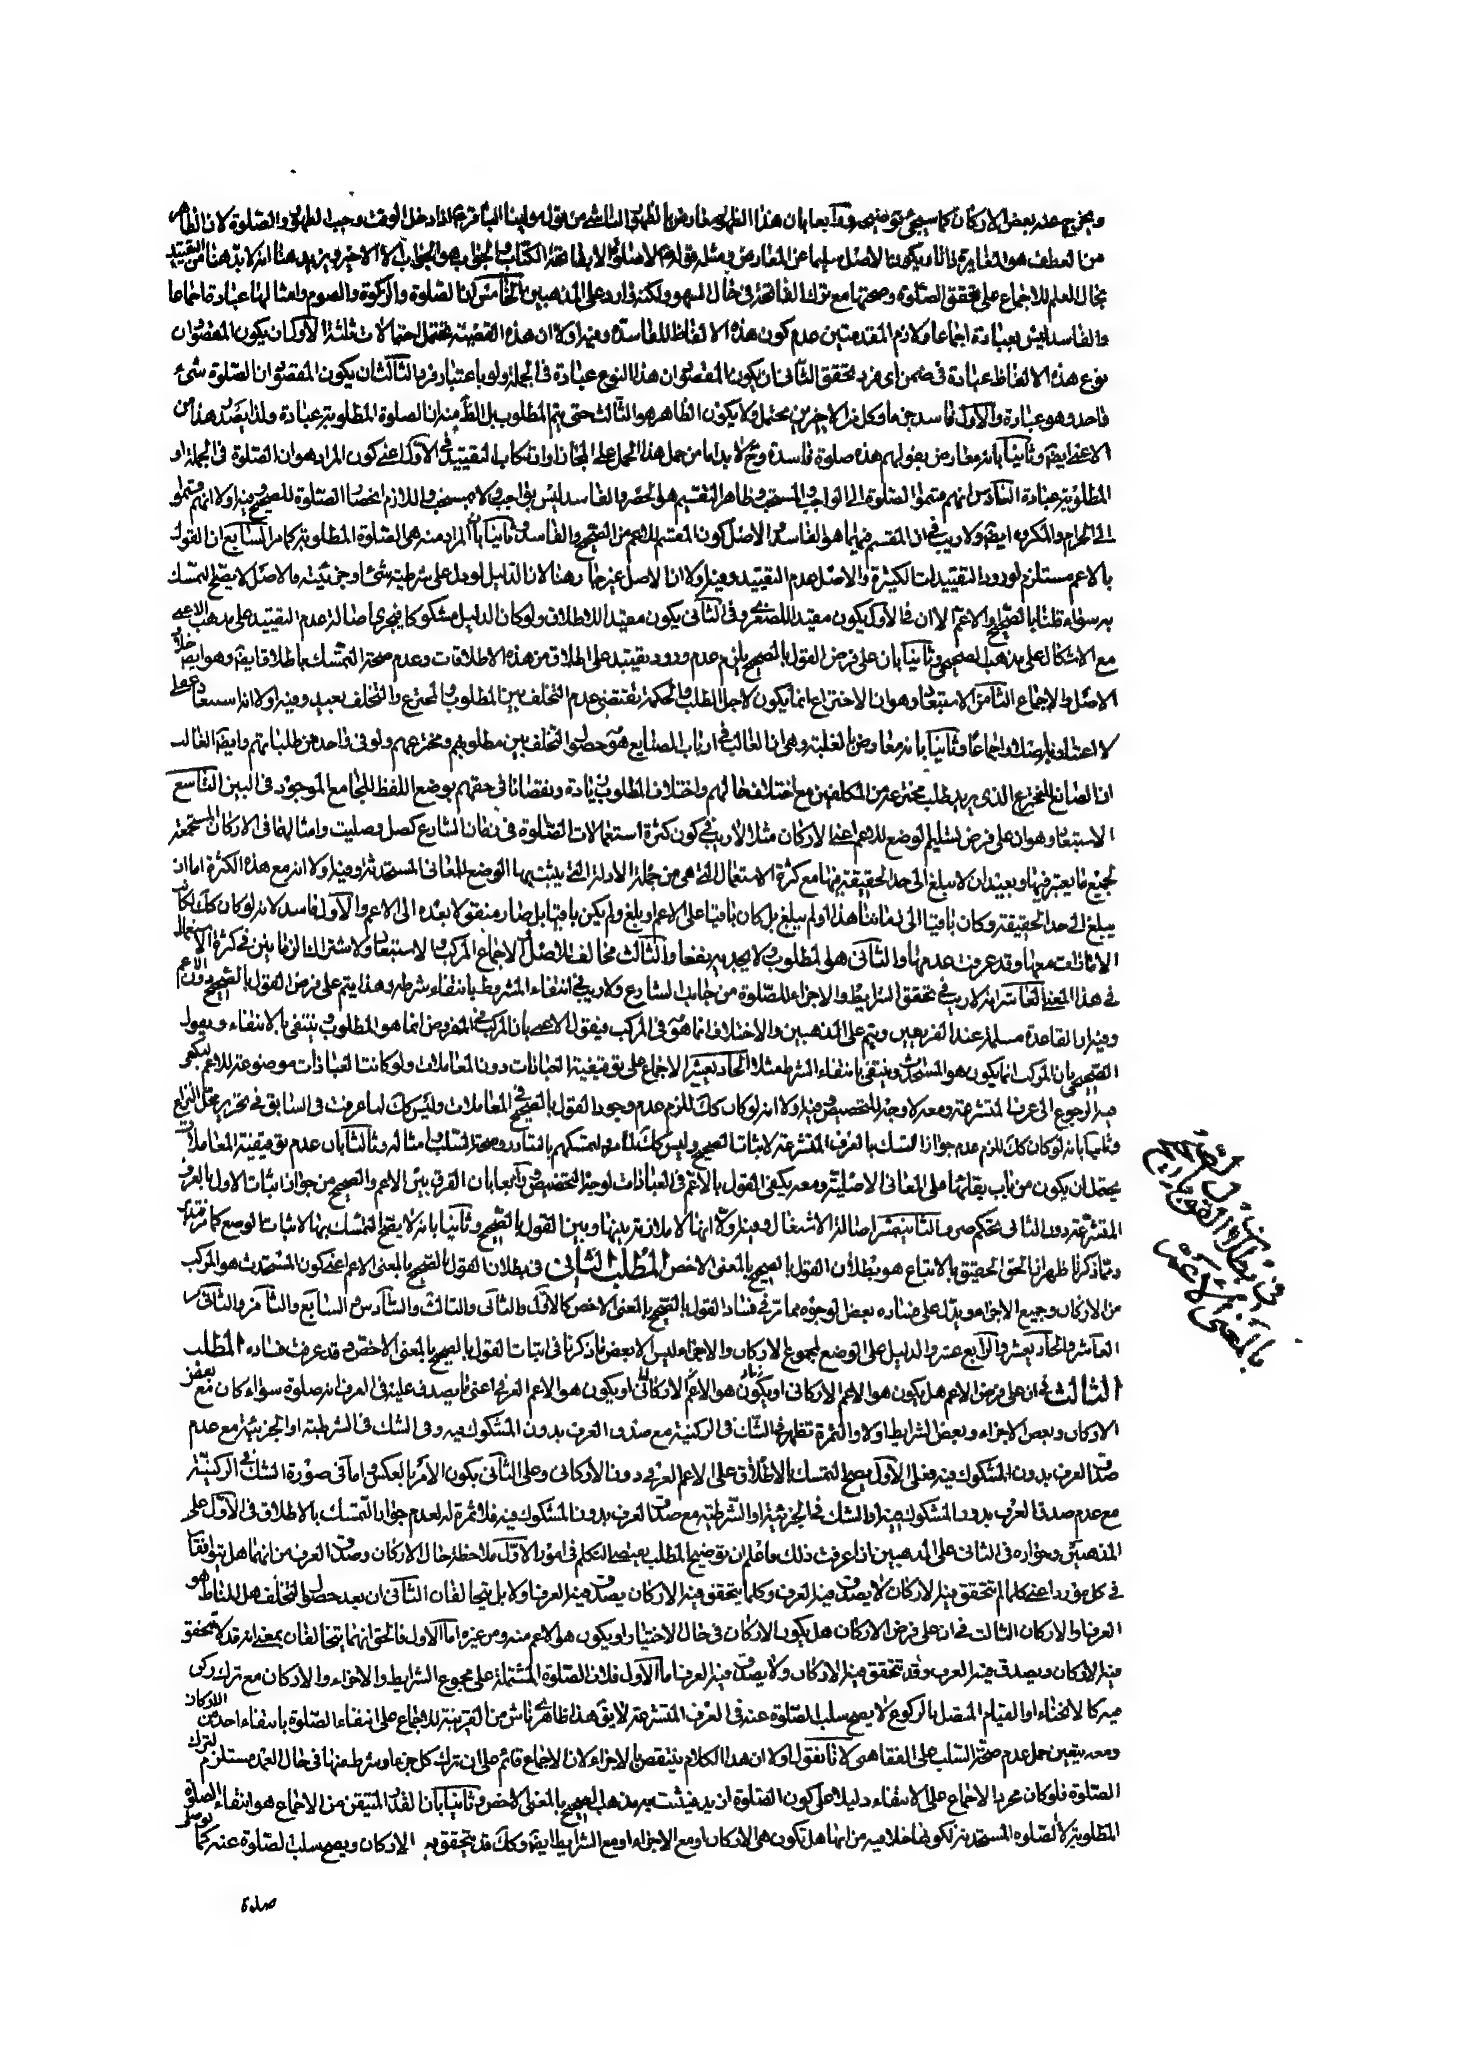 ويخرج عنه بعض الاركان كما سيجئ توضيحه ورابعا بان هذا الظهور معارض بالظهور الناشى من قول مولينا الباقر ع اذا دخل الوقت وجب الطهور والصلوة لان الظاهر
من العطف هو المغايرة فاذا يكون الاصل سليما عن المعارض ومثله قوله ع لا صلوة الا بفاتحة الكتاب والجواب هو الجواب الا الاخير ويزيد هنا انه لا بد هنا من التقييد
بحال العلم للاجماع على تحقق الصلوة وصحتها مع ترك الفاتحة في حال السهو ولكنه وارد على المذهبين الخامس ان الصلوة والزكوة والصوم وامثالها عبادة اجماعا
والفاسد ليس بعبادة اجماعا ولازم المقدمتين عدم كون هذه الالفاظ للفاسدة وفيه اولا ان هذه القضية تحتمل احتمالات ثلثة الاول ان يكون المقصود ان
نوع هذه الالفاظ عبادة في ضمن اى فرد تحقق الثاني ان يكون المقصود ان هذا النوع عبادة في الجملة ولو باعتبار فرد ما الثالث ان يكون المقصود ان الصلوة شئ
واحد وهو عبادة والاول فاسد جزما وكل من الاخيرين محتمل ولا يكون الظاهر هو الثالث حتى يتم المطلوب بل الظ منه ان الصلوة المطلوبة عبادة ولذا يصدر هذا من
الاعمي ايضا وثانيا بانه معارض بقولهم هذه صلوة فاسدة وح لا بد اما من حمل هذا الحمل على المجاز او ارتكاب التقييد في الاول اعني كون المراد هو ان الصلوة في الجملة او
المطلوبة عبادة السادس انهم قسموا الصلوة الى الواجب والمستحب وظاهر التقسيم هو الحصر والفاسد ليس بواجب ولا بمستحب واللازم انحصار الصلوة للصحيح وفيه اولا انهم قسموا
الى الحرام والمكروه ايضا ولا ريب في ان المقسم فيهما هو الفاسد والاصل كون المقسم للاعم من الصحيح والفاسد وثانيا بان المراد منه هى الصلوة المطلوبة كما مر السابع ان القول
بالاعم مستلزم لورود التقييدات الكثيرة والاصل عدم التقييد وفيه اولا ان الاصل غير جار هنا لان الدليل لو دل على شرطية شئ او جزئيته فالاصل لا يصلح التمسك
به سواء قلنا بالصحيح او الاعم الا ان في الاول يكون مقيدا للصغرى وفي الثاني يكون مقيدا للاطلاق ولو كان الدليل مشكوكا يجري اصالة عدم التقييد على مذهب الاعمي
مع الاشكال على مذهب الصحيحي وثانيا بان على فرض القول بالصحيح يلزم عدم ورود تقييد على اطلاق من هذه الاطلاقات وعدم صحة التمسك باطلاق ايضا وهو ايضا خلاف
الاصل والاجماع الثامن الاستبعاد وهو ان الاختراع انما يكون لاجل الطلب والحكمة تقتضي عدم التخلف بين المطلوب والمخترع والتخلف بعيد وفيه اولا انه استبعاد عقلي
لا اعتداد به اصلا واجماعا وثانيا بانه معارض بالغلبة وهى ان الغالب في ارباب الصنايع هو حصول التخلف بين مطلوبهم ومخترعهم ولو في واحد من طلباتهم وايضا الغالب
ان الصانع المخترع الذي يريد طلب مخترعه من المكلفين مع اختلاف حالهم واختلاف المطلوب زيادة ونقصانا في حقهم يوضع اللفظ للجامع الموجود في البين التاسع
الاستبعاد وهو ان على فرض تسليم الوضع للاعم اعني الاركان مثلا لا ريب في كون كثرة استعمالات الصلوة في زمان الشارع كصل وصليت وامثالهما في الاركان المستجمعة
لجميع ما يعتبر فيها وبعيد ان لا يبلغ الى حد الحقيقة فيها مع كثرة الاستعمال التي هى من جملة الادلة التي يثبت بها الوضع للمعاني المستحدثة وفيه اولا انه مع هذه الكثرة اما ان
يبلغ الى حد الحقيقة وكان باقيا الى زماننا هذا او لم يبلغ بل كان باقيا على الاعم او بلغ ولم يكن باقيا بل صار منقولا بعده الى الاعم والاول فاسد لانه لو كان كك لكان
الامارات معها وقد عرفت عدمها والثاني هو المطلوب ولا يجديه نفعا والثالث مخالف للاصل والاجماع المركب والاستبعاد ولاشتراك الزمانين في كثرة الاستعمال
في هذا المعنى العاشر انه لا ريب في تحقق الشرايط والاجزاء للصلوة من جانب الشارع ولا ريب في انتفاء المشروط بانتفاء شرطه وهذا يتم على فرض القول بالصحيح دون الاعم
وفيه ان القاعدة مسلمة عند الفريقين ويتم على المذهبين والاختلاف انما هو في المركب فيقول الاعمي بان المركب المفروض انما هو المطلوب وينتفي بالانتفاء ويقول
الصحيحي بان المركب انما يكون هو المستحدث وينتفي بانتفاء الشرط مثلا الحاديعشر الاجماع على توقيفية العبادات دون المعاملات ولو كانت العبادات موضوعة للاعم ليكون
فيه الرجوع الى عرف المتشرعة ومعه لا وجه للتخصيص وفيه اولا انه لو كان كك للزم عدم وجود القول بالصحيح في المعاملات وليس كك لما عرفت في السابق في تحرير محل النزاع
وثانيا بانه لو كان كك للزم عدم جواز التمسك بالعرف المتشرعة لاثبات الصحيح وليس كك لما مر لتمسكهم بالتبادر وصحة السلب وامثاله وثالثا بان عدم توقيفية المعاملات
يحتمل ان يكون من باب بقائها على المعاني الاصلية ومعه يكفي القول بالاعم في العبادات لوجه التخصيص ورابعا بان الفرق بين الاعم والصحيح من جواز اثبات الاول بالعرف
المتشرعة دون الثاني تحكم صرف الثانيعشر اصالة الاشتغال وفيه اولا انها لا ملازمة بينها وبين القول بالصحيح وثانيا بانه لا يصح التمسك بها لاثبات الوضع كما مر فتدبر
ومما ذكرنا ظهر ان الحق الحقيق بالاتباع هو بطلان القول بالصحيح بالمعنى الاخص المطلب الثاني في بطلان القول بالصحيح بالمعنى الاعم اعني كون المستحدث هو المركب
من الاركان وجميع الاجزاء ويدل على فساده بعض الوجوه مما مر في فساد القول بالصحيح بالمعنى الاخص كالاول والثاني والثالث والسادس والسابع والثامن والثاني
العاشر والحاديعشر والرابع عشر والدليل على الوضع لمجموع الاركان والاجزاء ليس الا بعض ما ذكرنا في اثبات القول بالصحيح بالمعنى الاخص وقد عرفت فساده المطلب
الثالث في ان على فرض الاعم هل يكون هو الاعم الاركاني او يكون هو الاعم العرفي اعني ما يصدق عليه في العرف انه صلوة سواء كان مع بعض
الاركان وبعض الاجزاء وبعض الشرايط اولا والثمرة تظهر في الشك في الركنية مع صدق العرف بدون المشكوك فيه وفي الشك في الشرطية او الجزئية مع عدم
صدق العرف بدون المشكوك فيه فعلى الاول يصح التمسك بالاطلاق على الاعم العرفي دون الاركاني وعلى الثاني يكون الامر بالعكس واما في صورة الشك في الركنية
مع عدم صدق العرف بدون المشكوك فيه او الشك في الجزئية او الشرطية مع صدق العرف بدون المشكوك فيه فلا ثمرة له لعدم جواز التمسك بالاطلاق في الاول على
المذهبين وجوازه في الثاني على المذهبين اذا عرفت ذلك فاعلم ان توضيح المطلب يقتضي التكلم في امور الاول ملاحظة حال الاركان وصدق العرف من انهما هل يتوافقا
في كل مورد اعني كلما لم تتحقق فيه الاركان لا يصدق فيه العرف وكلما يتحقق فيه الاركان يصدق فيه العرف او لا بل يتخالفان الثاني ان بعد حصول التخلف هل المناط هو
العرف او الاركان الثالث في ان على فرض الاركان هل يكون الاركان في حال الاختيار او يكون هو الاعم منه ومن غيره اما الاول فالحق انهما يتخالفان بمعنى انه قد لا تتحقق
فيه الاركان ويصدق فيه العرف وقد تتحقق فيه الاركان ولا يصدق فيه العرف اما الاول فلان الصلوة المشتملة على مجموع الشرايط والاجزاء والاركان مع ترك ركن
فيه كالانحناء او القيام المتصل بالركوع لا يصح سلب الصلوة عنه في العرف المتشرعة لا يق هذا ظاهرى ناش من القرينة للاجماع على انتفاء الصلوة بانتفاء احد من الاركان
ومعه يتعين حمل عدم صحة السلب على الفقاهى لانا نقول اولا ان هذا الكلام ينتقض بالاجزاء لان الاجماع قائم على ان ترك كل جزء او شرط منها في حال العمد مستلزم لترك
الصلوة فلو كان مجرد الاجماع على الانتفاء دليلا على كون الصلوة اذيد فيثبت به مذهب الصحيح بالمعنى الاخص وثانيا بان القدر المتيقن من الاجماع هو انتفاء الصلوة
المطلوبة لا الصلوة المستحدثة لكونها خلافية من انها هل تكون هى الاركان او مع الاجزاء او مع الشرايط ايضا وكك قد يتحقق فيه الاركان ويصح سلب الصلوة عنه كما لو صلى
صلوة
في بطلان القول بالصحيح
بالمعنى الاعم